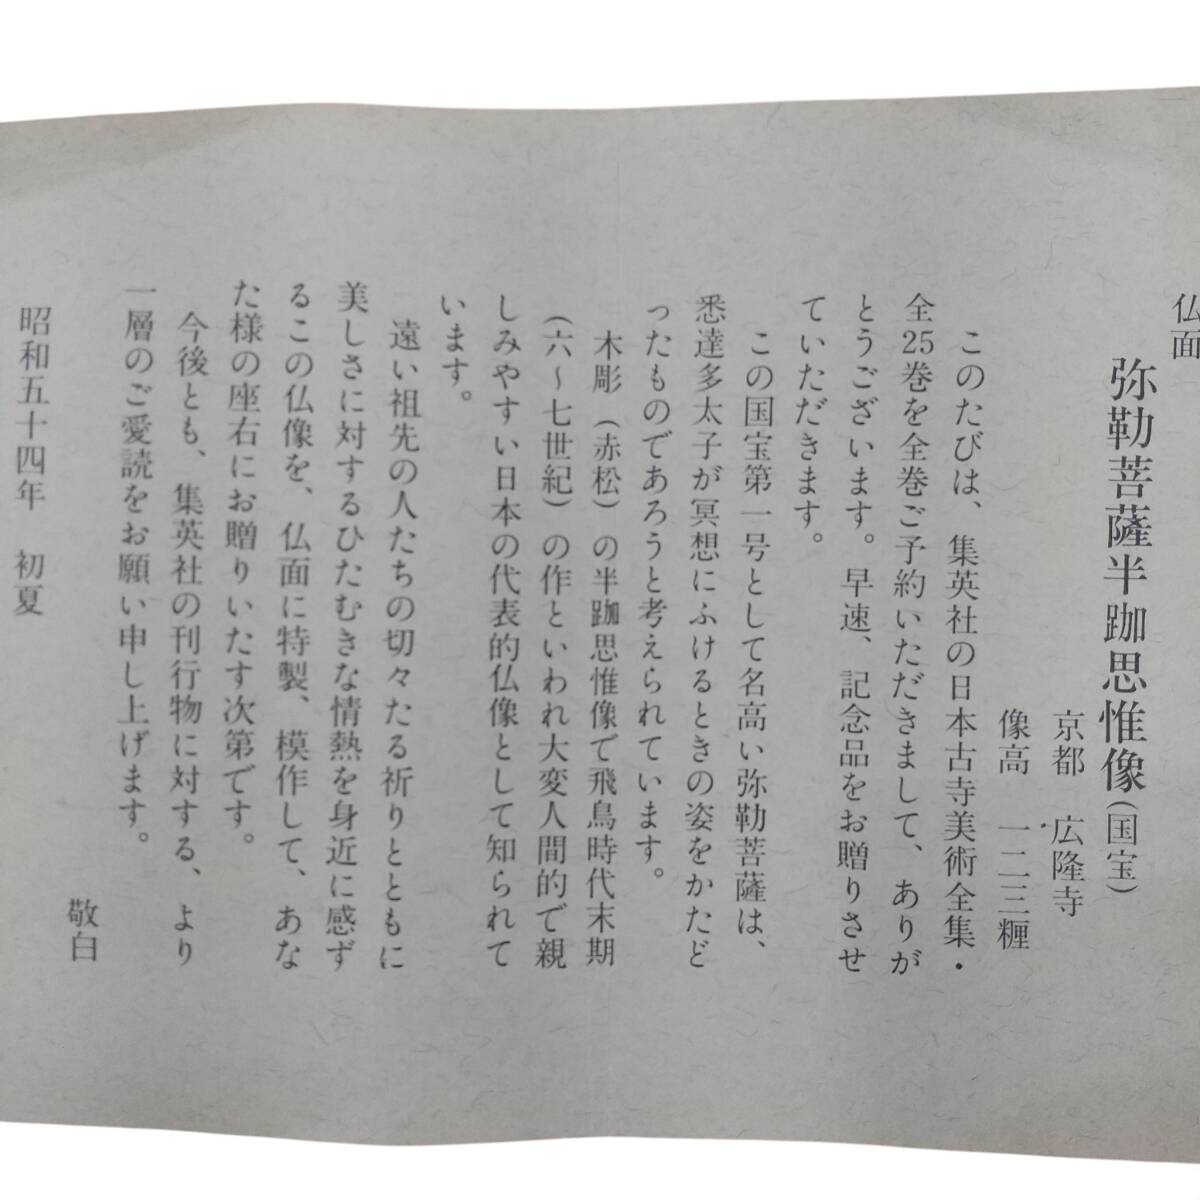 仏面
弥勒菩薩半跏思惟像(国宝)
京都 広隆寺
像高 一二三糎
このたびは、集英社の日本古寺美術全集・
全25巻を全巻ご予約いただきまして、ありが
とうございます。早速、記念品をお贈りさせ
ていただきます。
この国宝第一号として名高い弥勒菩薩は、
悉達多太子が冥想にふけるときの姿をかたど
ったものであろうと考えられています。
木彫(赤松)の半跏思惟像で飛鳥時代末期
(六〜七世紀)の作といわれ大変人間的で親
しみやすい日本の代表的仏像として知られて
います。
遠い祖先の人たちの切々たる祈りとともに
美しさに対するひたむきな情熱を身近に感ず
るこの仏像を、仏面に特製、模作して、あな
た様の座右にお贈りいたす次第です。
今後とも、集英社の刊行物に対する、より
一層のご愛読をお願い申し上げます。
敬白
昭和五十四年 初夏